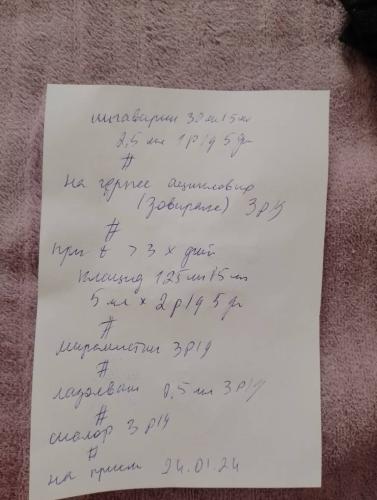 ингавирин 30мг/5мл
2,5 мл 1 р/д 5 дн
#
на герпес ацикловир
(Зовиракс) 3 р/д
#
при t > 3х дней
клацид 125мг/5мл
5 мл х 2 р/д 5 дн
#
мирамистин 3 р/д
#
0,5 мл 3 р/д
#
3 р/д
#
на прием 24.01.24